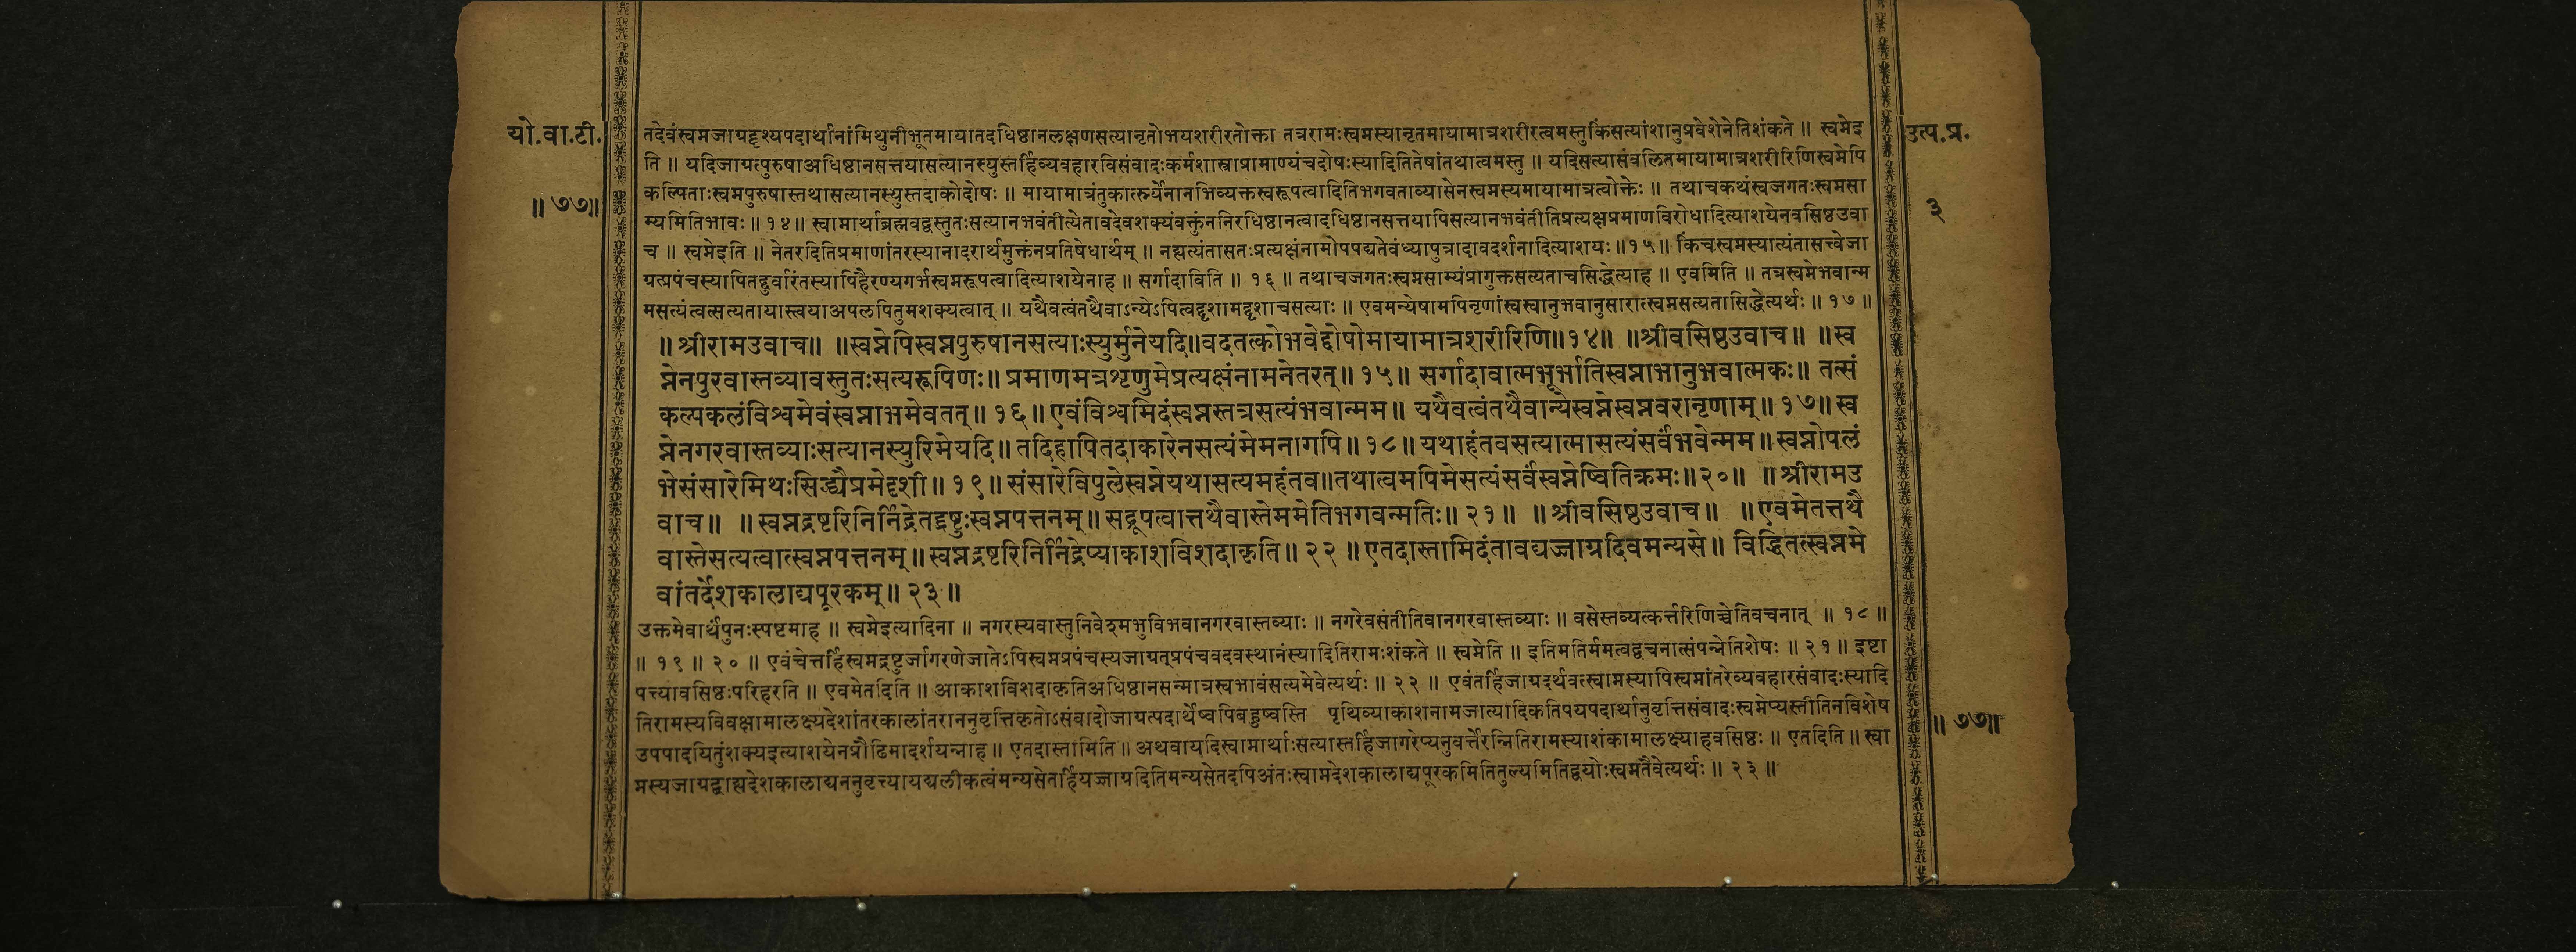 यो.वा.टी.
॥७७॥
उत्प.प्र.
३
तदेवंस्वप्नजाग्रद्दृश्यपदार्थानांमिथुनीभूतमायातदधिष्ठानलक्षणसत्यानृतोभयशरीरतोक्ता तत्ररामःस्वप्नस्यानृतमायामात्रशरीरत्वमस्तुकिंसत्यांशानुप्रवेशेनेतिशंकते ॥ स्वप्नेइ
ति ॥ यदिजाग्रत्पुरुषाअधिष्ठानसत्तयासत्यानस्युस्तर्हिव्यवहारविसंवादःकर्मशास्त्राप्रामाण्यंचदोषःस्यादितितेषांतथात्वमस्तु ॥ यदिसत्यासंवलितमायामात्रशरीरिणिस्वप्नेपि
कल्पिताःस्वप्नपुरुषास्तथासत्यानस्युस्तदाकोदोषः ॥ मायामात्रंतुकार्त्स्न्येनानभिव्यक्तस्वरूपत्वादितिभगवताव्यासेनस्वप्नस्यमायामात्रत्वोक्तेः ॥ तथाचकथंस्वजगतःस्वप्नसा
म्यमितिभावः ॥ १४ ॥ स्वाप्नार्थाब्रह्मवद्वस्तुतःसत्यानभवंतीत्येतावदेवशक्यंवक्तुंननिरधिष्ठानत्वादधिष्ठानसत्तयापिसत्यानभवंतीतिप्रत्यक्षप्रमाणविरोधादित्याशयेनवसिष्ठउवा
च ॥ स्वप्नेइति ॥ नेतरदितिप्रमाणांतरस्यानादरार्थमुक्तंनप्रतिषेधार्थम् ॥ नह्यत्यंतासतःप्रत्यक्षंनामोपपद्यतेवंध्यापुत्रादावदर्शनादित्याशयः ॥१५॥ किंचस्वप्नस्यात्यंतासत्त्वेजा
ग्रत्प्रपंचस्यापितद्दुर्वारंतस्यापिहैरण्यगर्भस्वप्नरूपत्वादित्याशयेनाह ॥ सर्गादाविति ॥ १६ ॥ तथाचजगतःस्वप्नसाम्यंप्रागुक्तसत्यताचसिद्धेत्याह ॥ एवमिति ॥ तत्रस्वप्नेभवान्म
मसत्यंत्वत्सत्यतायास्त्वयाअपलपितुमशक्यत्वात् ॥ यथैवत्वंतथैवाऽन्येऽपित्वद्दृशामद्दृशाचसत्याः ॥ एवमन्येषामपिनृणांस्वस्वानुभवानुसारात्स्वप्नसत्यतासिद्धेत्यर्थः ॥ १७ ॥
॥ श्रीरामउवाच ॥ ॥स्वप्नेपिस्वप्नपुरुषानसत्याःस्युर्मुनेयदि॥वदतत्कोभवेद्दोषोमायामात्रशरीरिणि॥१४॥ ॥श्रीवसिष्ठउवाच॥ ॥स्व
प्नेनपुरवास्तव्यावस्तुतःसत्यरूपिणः॥ प्रमाणमत्रशृणुमेप्रत्यक्षंनामनेतरत्॥ १५॥ सर्गादावात्मभूर्भातिस्वप्नाभानुभवात्मकः॥ तत्सं
कल्पकलंविश्वमेवंस्वप्नाभमेवतत्॥ १६॥ एवंविश्वमिदंस्वप्नस्तत्रसत्यंभवान्मम॥ यथैवत्वंतथैवान्येस्वप्नेस्वप्नवरानृणाम्॥ १७॥ स्व
प्नेनगरवास्तव्याःसत्यानस्युरिमेयदि॥ तदिहापितदाकारेनसत्यंमेमनागपि॥ १८॥ यथाहंतवसत्यात्मासत्यंसर्वंभवेन्मम॥ स्वप्नोपलं
भेसंसारेमिथःसिद्ध्यैप्रमेदृशी॥ १९॥ संसारेविपुलेस्वप्नेयथासत्यमहंतव॥तथात्वमपिमेसत्यंसर्वंस्वप्नेष्वितिक्रमः॥२०॥ ॥ श्रीरामउ
वाच॥ ॥ स्वप्नद्रष्टरिनिर्निद्रेतद्द्रष्टुःस्वप्नपत्तनम्॥ सद्रूपत्वात्तथैवास्तेममेतिभगवन्मतिः॥ २१॥ ॥ श्रीवसिष्ठउवाच॥ ॥ एवमेतत्तथै
वास्तेसत्यत्वात्स्वप्नपत्तनम्॥ स्वप्नद्रष्टरिनिर्निद्रेप्याकाशविशदाकृति॥ २२ ॥ एतदास्तामिदंतावद्यज्जाग्रदिवमन्यसे॥ विद्धितत्स्वप्नमे
वांतर्देशकालाद्यपूरकम्॥ २३॥
उक्तमेवार्थंपुनःस्पष्टमाह ॥ स्वप्नेइत्यादिना ॥ नगरस्यवास्तुनिवेश्मभुविभवानगरवास्तव्याः ॥ नगरेवसंतीतिवानगरवास्तव्याः ॥ वसेस्तव्यत्कर्त्तरिणिच्चेतिवचनात् ॥ १८ ॥
॥ १९ ॥ २० ॥ एवंचेत्तर्हिस्वप्नद्रष्टुर्जागरणेजातेऽपिस्वप्नप्रपंचस्यजाग्रत्प्रपंचवदवस्थानंस्यादितिरामःशंकते ॥ स्वप्नेति ॥ इतिमतिर्ममत्वद्वचनात्संपन्नेतिशेषः ॥ २१ ॥ इष्टा
पत्त्यावसिष्ठःपरिहरति ॥ एवमेतदिति ॥ आकाशविशदाकृतिअधिष्ठानसन्मात्रस्वभावंसत्यमेवेत्यर्थः ॥ २२ ॥ एवंतर्हिजाग्रदर्थवत्स्वाप्नस्यापिस्वप्नांतरेव्यवहारसंवादःस्यादि
तिरामस्यविवक्षामालक्ष्यदेशांतरकालांतराननुवृत्तिकृतोऽसंवादोजाग्रत्पदार्थेष्वपिबहुष्वस्ति पृथिव्याकाशनामजात्यादिकतिपयपदार्थानुवृत्तिसंवादःस्वप्नेप्यस्तीतिनविशेष
उपपादयितुंशक्यइत्याशयेनप्रौढिमादर्शयन्नाह ॥ एतदास्तामिति ॥ अथवायदिस्वाप्नार्थाःसत्यास्तर्हिजागरेप्यनुवर्त्तेरन्नितिरामस्याशंकामालक्ष्याहवसिष्ठः ॥ एतदिति ॥ स्वा
प्नस्यजाग्रद्बाह्यदेशकालाद्यननुवृत्त्यायद्यलीकत्वंमन्यसेतर्हियज्जाग्रदितिमन्यसेतदपिअंतःस्वाप्नदेशकालाद्यपूरकमितितुल्यमितिद्वयोःस्वप्नतैवेत्यर्थः ॥ २३ ॥
॥७७॥